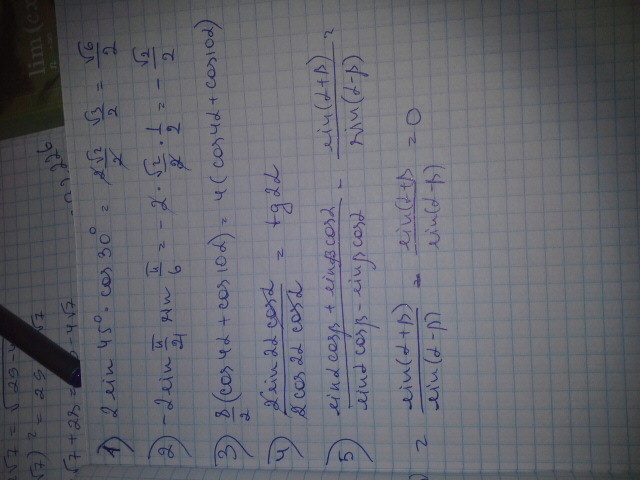 1) 2 sin 45° · cos 30° = 2 √2/2 √3/2 = √6/2
2) -2 sin π/4 sin π/6 = -2 · √2/2 · 1/2 = - √2/2
3) 8/2 (cos 4α + cos 10α) = 4 (cos 4α + cos 10α)
4) 2 sin 2α cos α / 2 cos 2α cos α = tg 2α
5) sin α cos β + sin β cos α / sin α cos β - sin β cos α - sin(α+β) / sin(α-β) =
= sin(α+β) / sin(α-β) - sin(α+β) / sin(α-β) = 0
lim